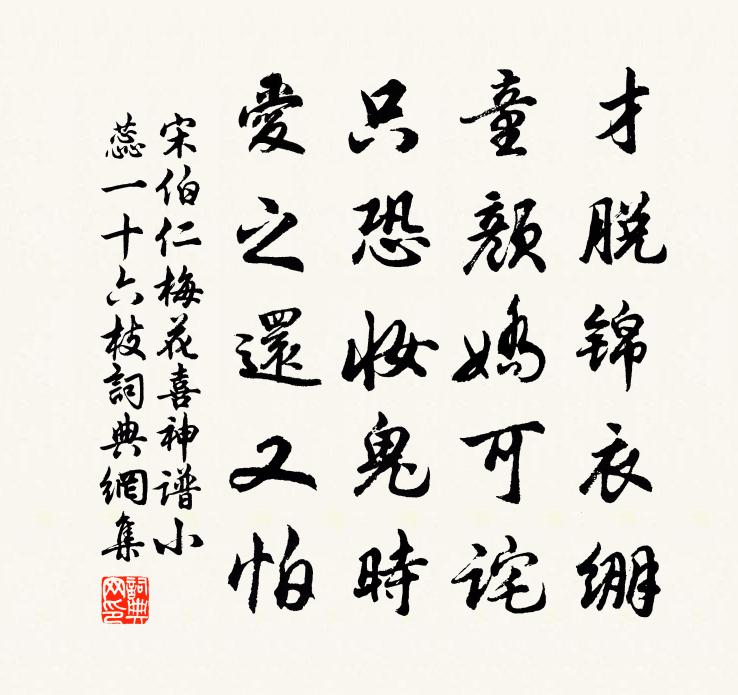 才脱锦衣绷
童颜娇可诧
只恐妆鬼時
愛之還又怕
宋伯仁梅花喜神谱小
蕊一十六枝詞典網集
詞典
网印